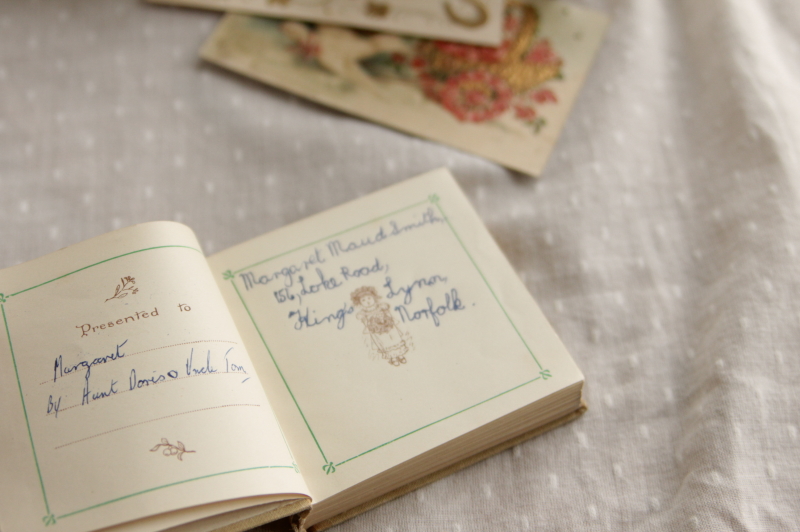 Presented to
Margaret
By Aunt Doris & Uncle Tom
Margaret Maud Smith,
156, Loke Road,
King's Lynn,
Norfolk.